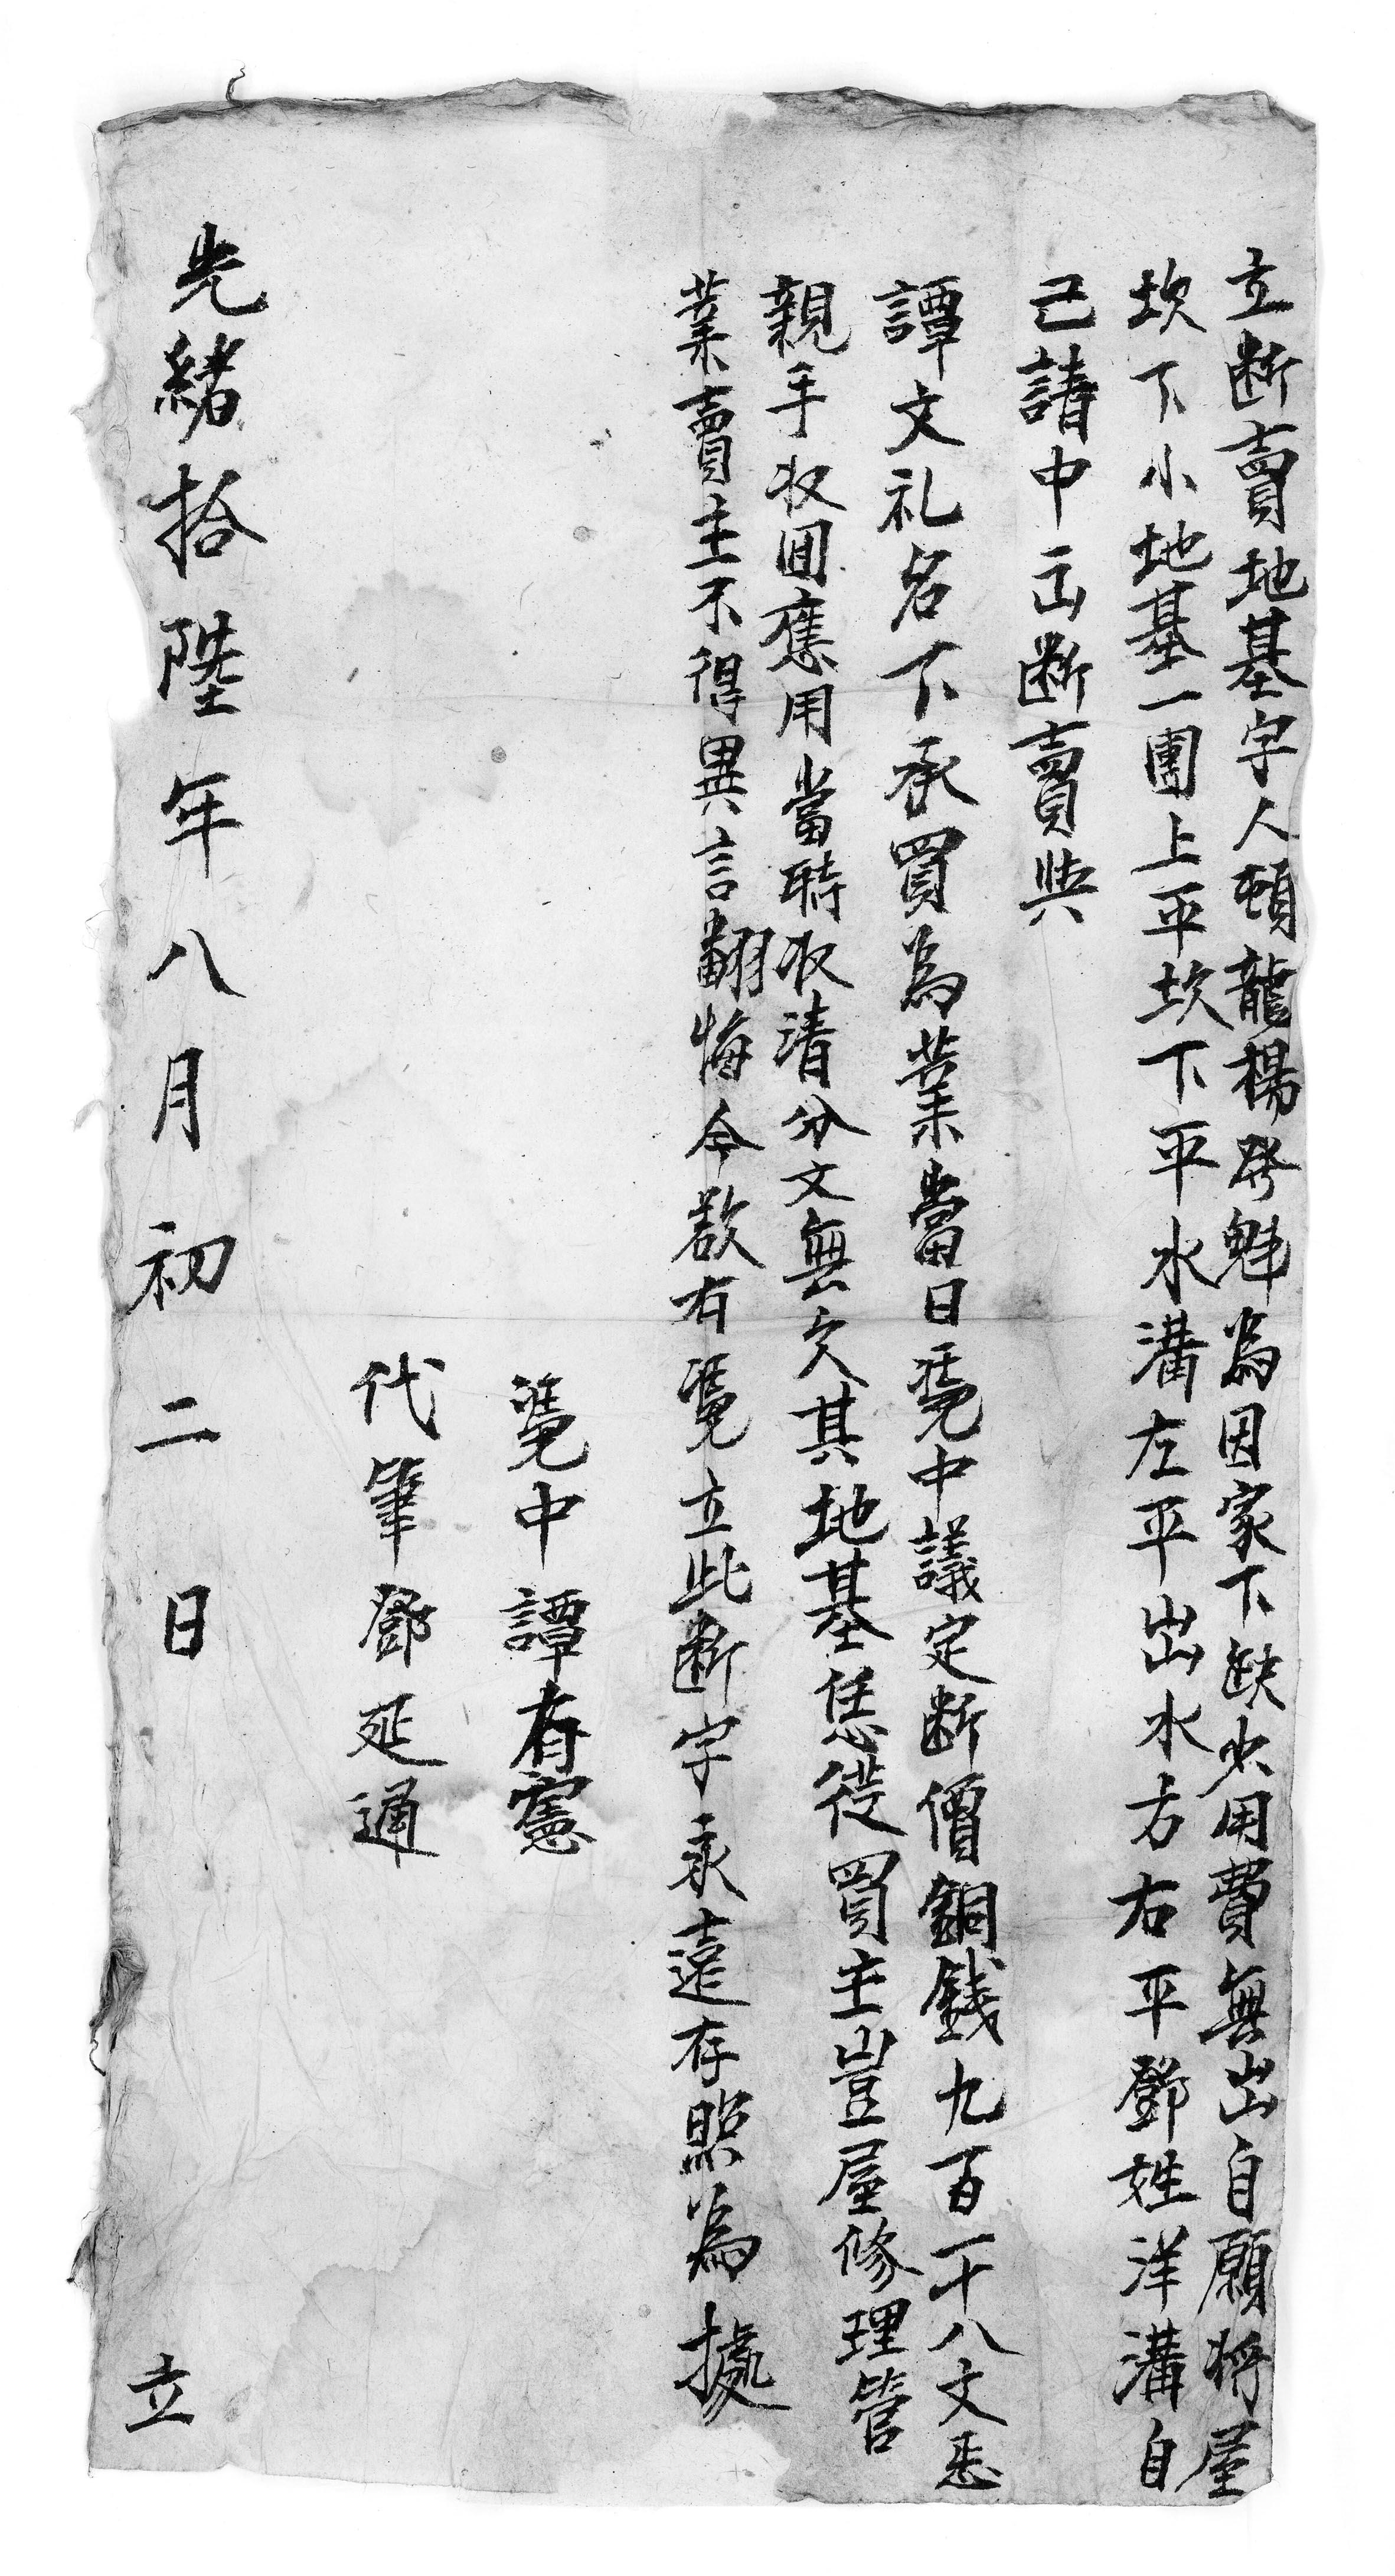 立断賣地基字人頓龍楊發魁為因家下缺少用費無出自願將屋
坎下小地基一團上平坎下平水溝左平出水方右平鄧姓洋溝自
己請中出断賣與
譚文礼名下承買為業當日凴中議定断價銅銭九百一十八文悉
親手收囬應用當時收清分文無欠其地基恁從買主豈屋修理管
業賣主不得異言翻悔今欲有凴立此断字永遠存照為據
凴中譚有憲
代筆鄧延通
光緒拾陸年八月初二日立